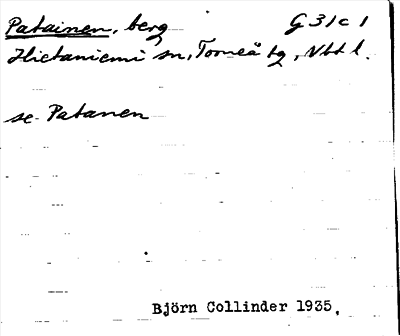 Patainen, berg G 31 c 1
Hietaniemi sn, Torneå tg, Nbtt l.
se Patanen
Björn Collinder 1935.